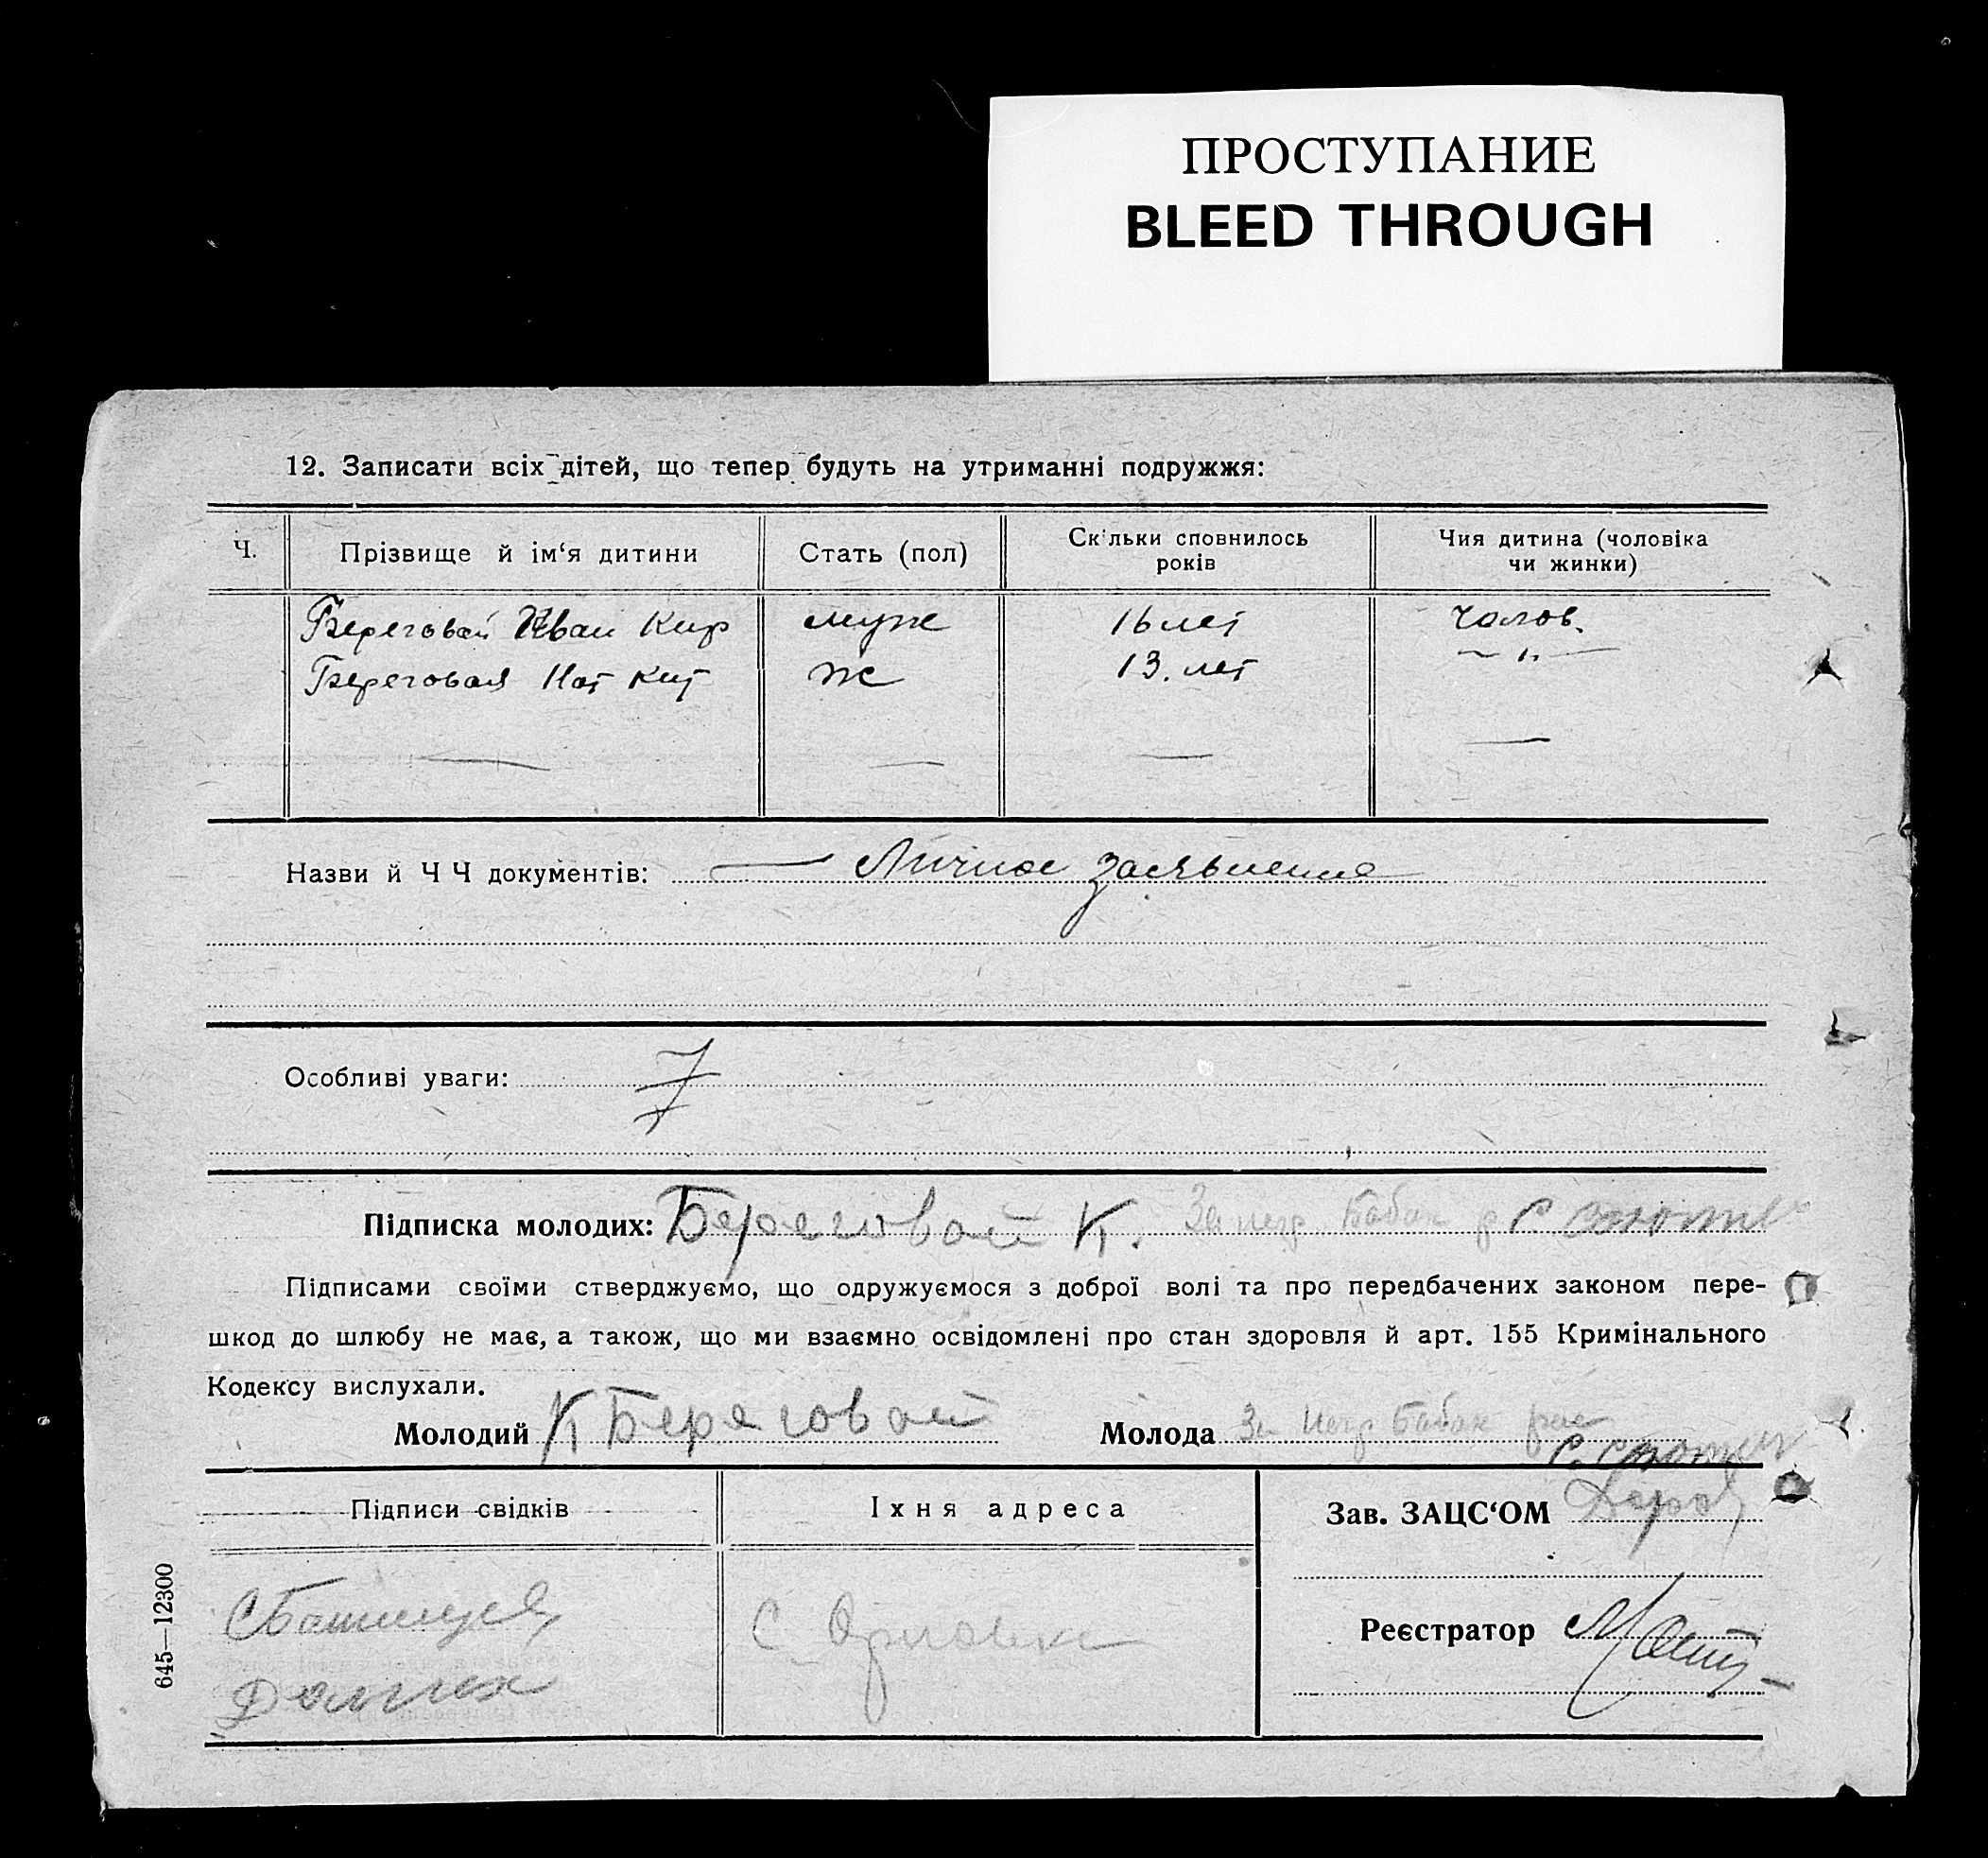 ПРОСТУПАНИЕ
BLEED THROUGH
12. Записати всіх дітей, що тепер будуть на утриманні подружжя:
Ч. Прізвище й ім‘я дитини Стать (пол) Скільки сповнилось років Чия дитина (чоловіка чи жинки)
Береговой Иван Кир муж 16 лет Чолов.
Береговая Нат Кир ж 13. лет — „ —
Назви й Ч Ч документів: — Личное заявление
Особливі уваги:
Підписка молодих: Береговой К. За негр Бабак р С.
Підписами своїми стверджуємо, що одружуємося з доброї волі та про передбачених законом пере-
шкод до шлюбу не має, а також, що ми взаємно освідомлені про стан здоровля й арт. 155 Кримінального
Кодексу вислухали.
Молодий К Береговой Молода За негр Бабак рас
С.
Підписи свідків Їхня адреса Зав. ЗАЦС‘ОМ
С Орловка
Реєстратор
Долгих
645—12300